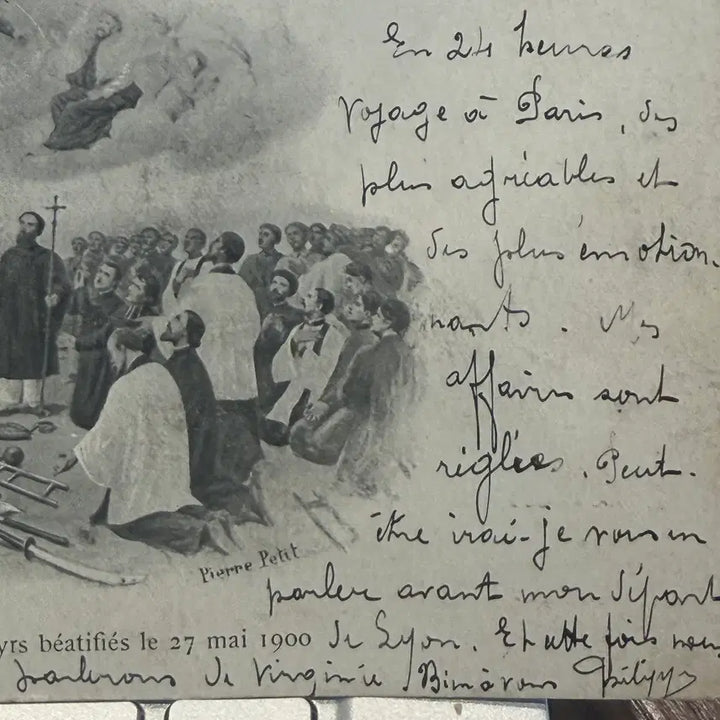 En 24 heures
voyage à Paris, des
plus agréables et
des plus émotion-
nants. Mes
affaires sont
réglées. Peut-
être irai-je vous en
parler avant mon départ
Pierre Petit
yrs béatifiés le 27 mai 1900 de Lyon. Et cette fois nous
parlerons de Virginie Bien à vous